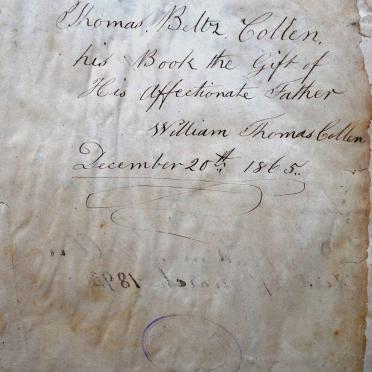 Thomas. Beltz. Collen,
his Book the Gift of
His Affectionate Father
William Thomas Collen
December 20th 1865.